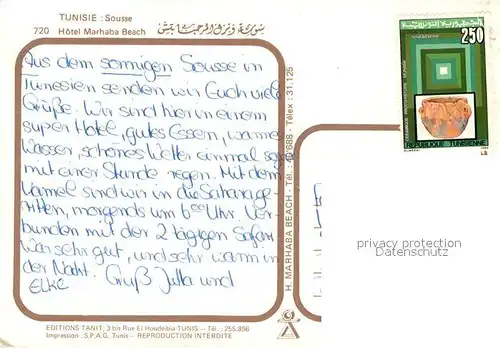 TUNISIE : Sousse
720 Hôtel Marhaba Beach
Aus dem sonnigen Sousse in
Tunesien senden wir Euch viele
Grüße. Wir sind hier in einem
super Hotel, gutes Essen, warmes
Wasser, schönes Wetter einmal sogar
mit einer Stunde regen. Mit dem
Kamel sind wir in die Sahara ge-
ritten, morgends um 6 00 Uhr. Ver-
bunden mit der 2 tägigen Safari
war sehr gut, und sehr warm in
der Nacht. Gruß Jutta und
Elke
EDITIONS TANIT, 3 bis Rue El Houdeibia TUNIS – Tél. : 255.896
Impression : S.P.A.G. Tunis – REPRODUCTION INTERDITE
H. MARHABA BEACH - Tél. : 40.688 - Télex : 31.125
250
REPUBLIQUE TUNISIENNE
privacy protection
Datenschutz